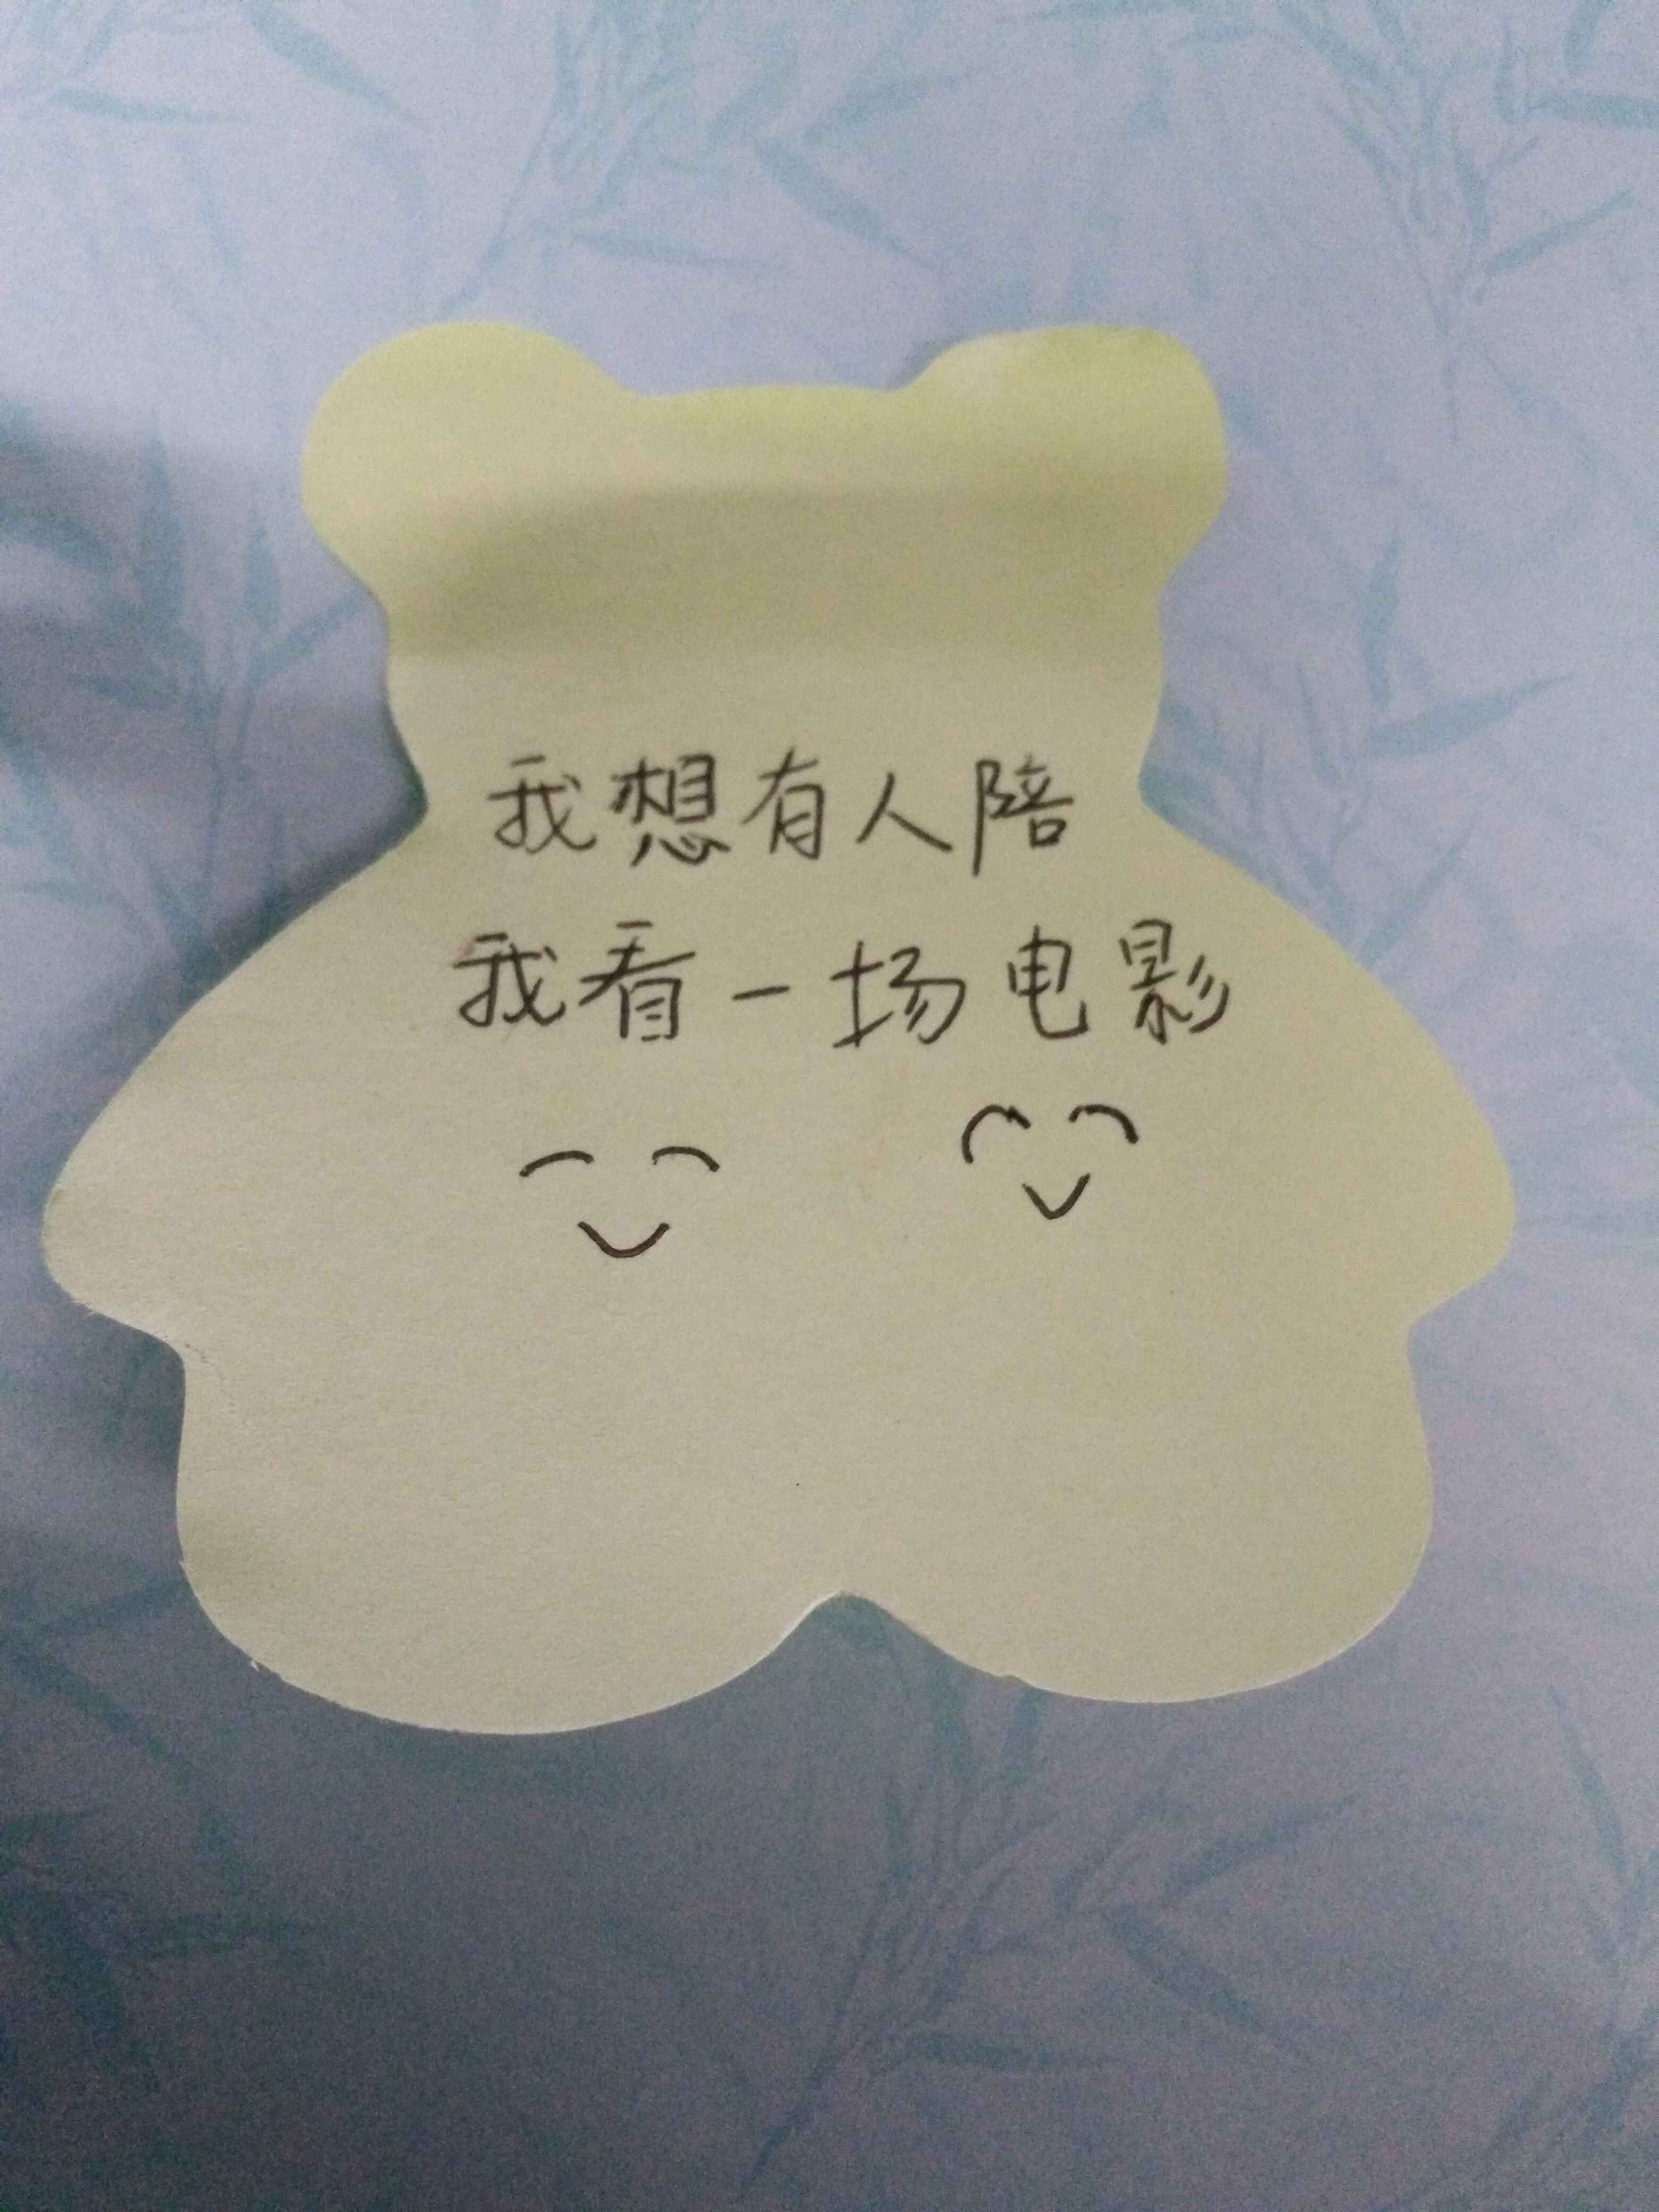 我想有人陪
我看一场电影